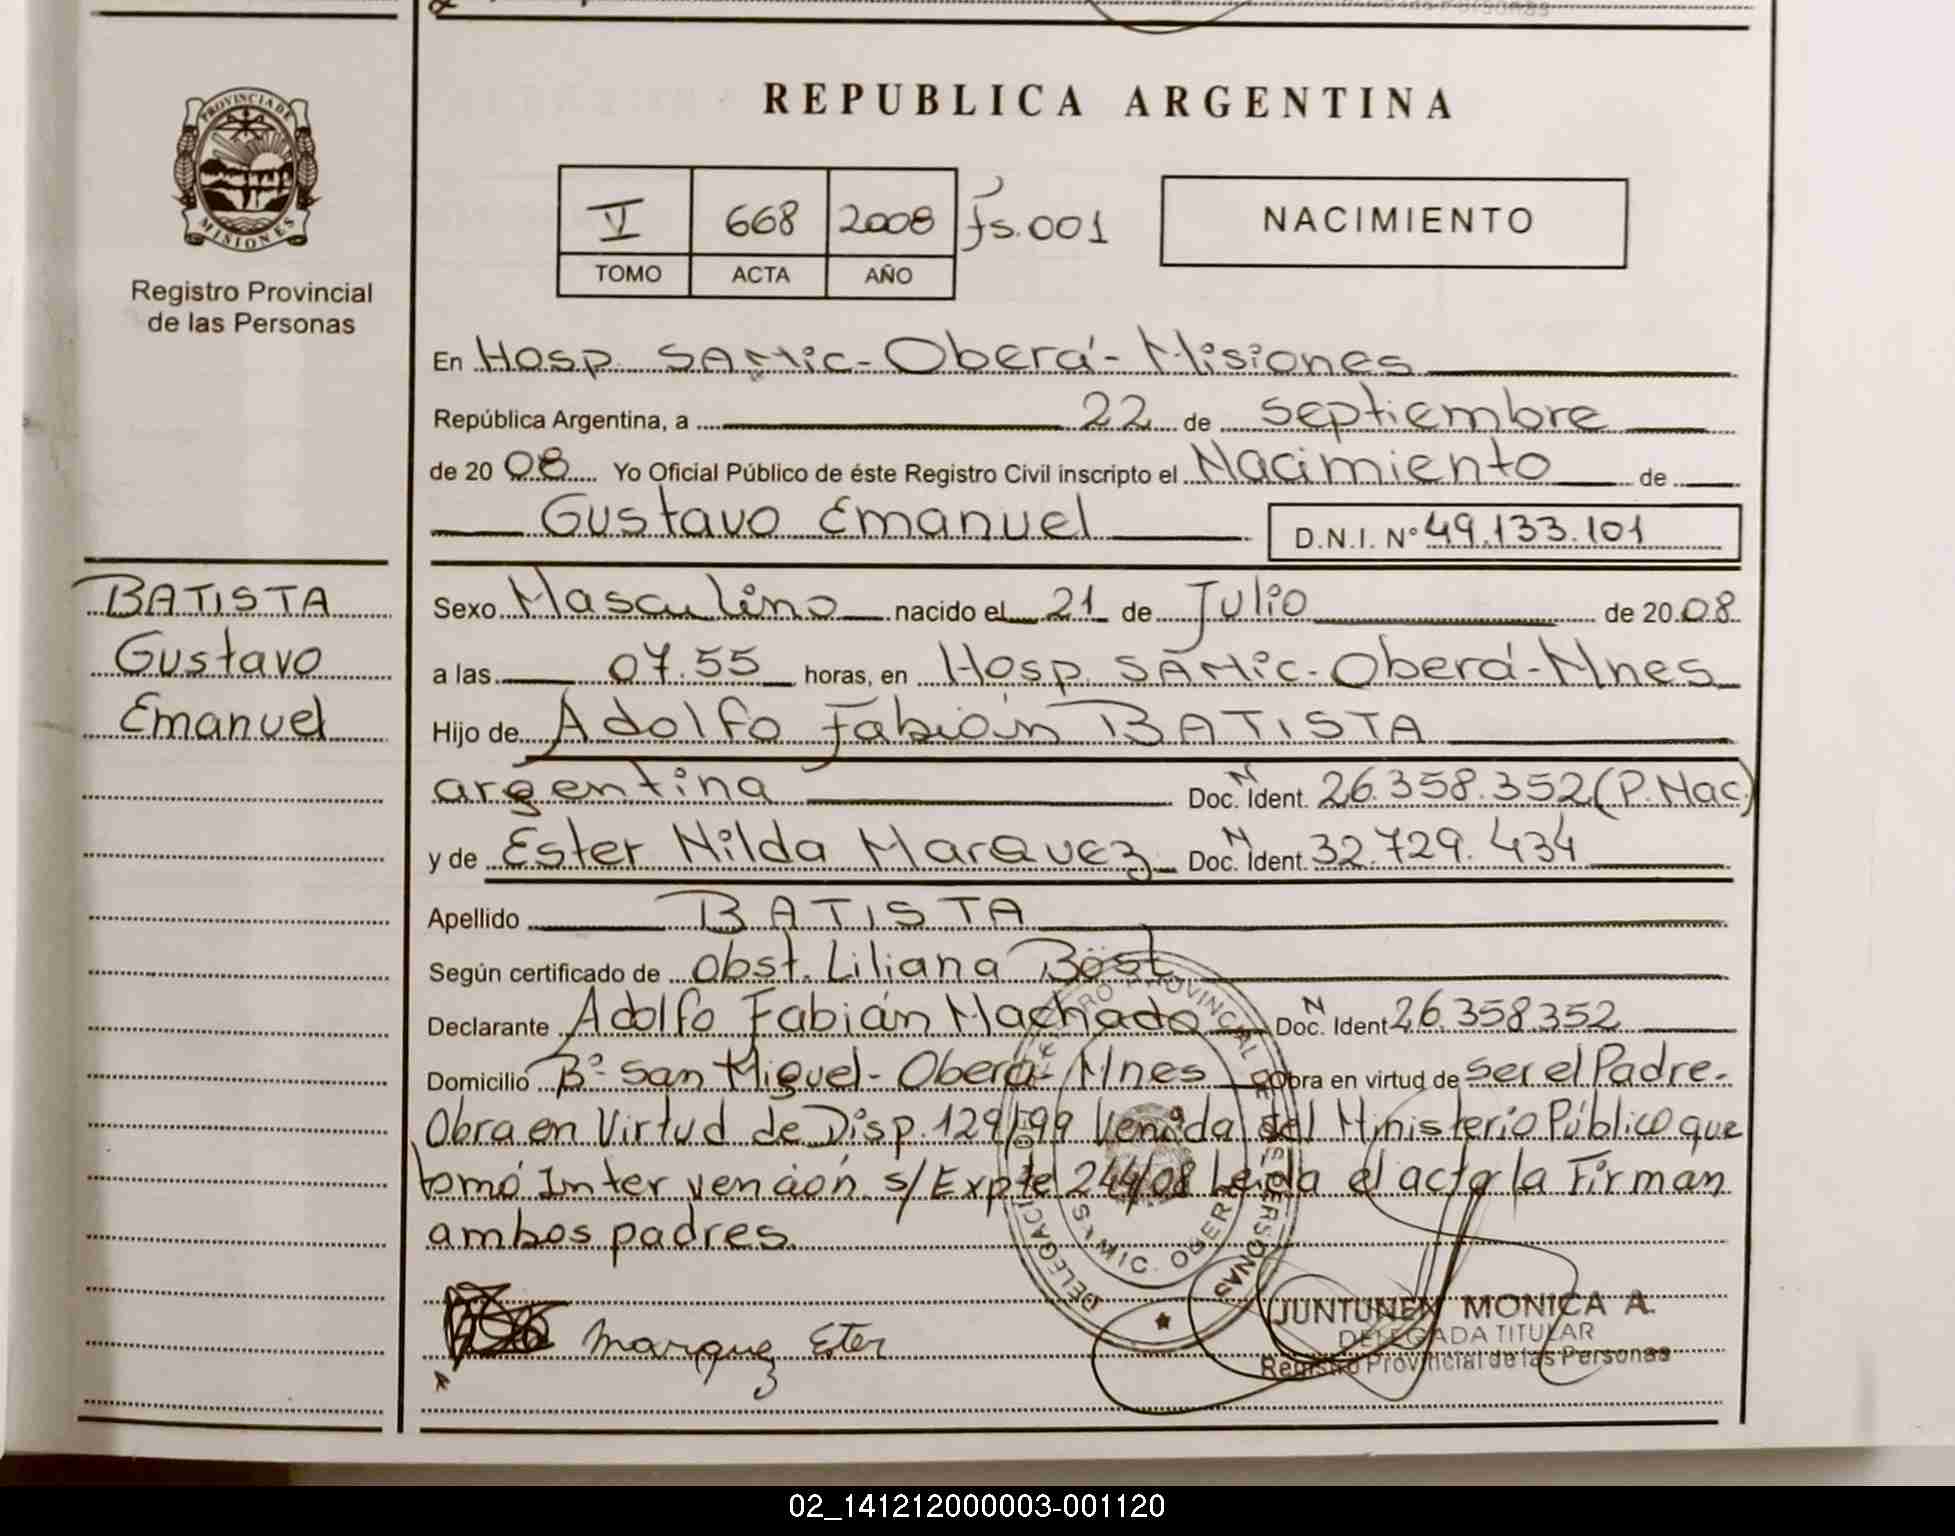 REPUBLICA ARGENTINA
PROVINCIA DE
MISIONES
Registro Provincial
de las Personas
V 668 2008 fs.001
TOMO ACTA AÑO
NACIMIENTO
En Hosp. SAMic-Oberá-Misiones
República Argentina, a 22 de septiembre
de 20 08 Yo Oficial Público de éste Registro Civil inscripto el Nacimiento de
Gustavo Emanuel D.N.I. Nº 49.133.101
BATISTA
Gustavo
Emanuel
Sexo Masculino nacido el 21 de Julio de 20 08
a las 07.55 horas, en Hosp. SAMic-Oberá-Mnes
Hijo de Adolfo Fabián BATISTA
argentina Doc. N Ident. 26.358.352 (P.Nac.)
y de Ester Nilda Marquez Doc. N Ident. 32.729.434
Apellido BATISTA
Según certificado de obst. Liliana Böst
Declarante Adolfo Fabián Machado Doc. N Ident 26.358.352
Domicilio Bº San Miguel-Oberá-Mnes Obra en virtud de ser el Padre.
Obra en Virtud de Disp. 129/99 Venida del Ministerio Público que
tomó Intervención s/Expte 244/08 Leida el acta la Firman
ambos padres.
Marquez Ester
JUNTUNEN MONICA A.
DELEGADA TITULAR
Registro Provincial de las Personas
02_141212000003-001120